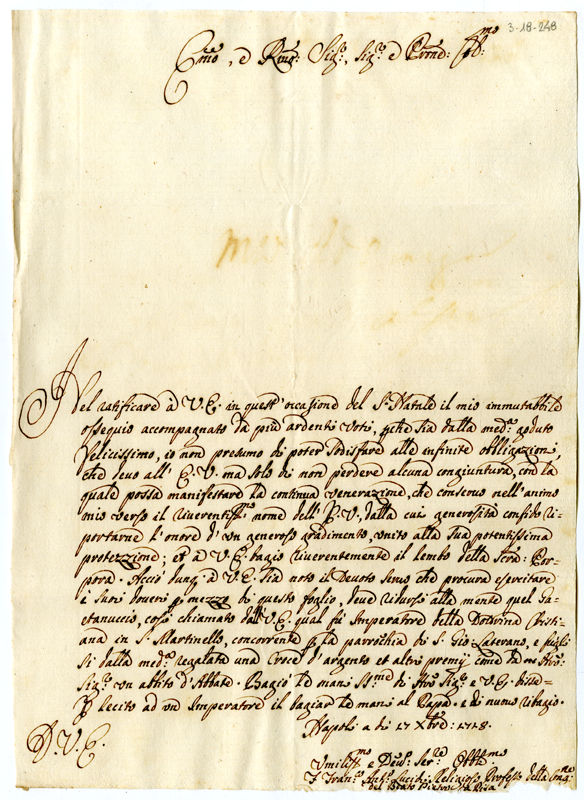 3-18-248
Em̃o, e Rmo: Sigr., Sigr. e Prone: Col:mo
Nel ratificare à V.E. in quest' occazione del So. Natale il mio immutabbile
ossequio accompagnato da più ardenti voti, che sia dalla medma. goduto
Felicissimo, io non presumo di poter sodisfare alle infinite obbligazioni,
che devo all' E.V. ma solo di non perdere alcuna congiuntura, con la
quale possa manifestare la continua venerazione, che conservo nell' animo
mio verso il riverentissmo nome dell' E.V., dalla cui generosità confido ri-
portarne l' onore d' un generoso gradimento, unito alla sua potentissima
protezzione; et à V.E. bagio riverentemente il lembo della Sacra Por-
pora. Acciò dunq. à V.E. sia noto il Devoto Servo che procura esercitare
i suoi doveri p. mezzo di questo foglio, deve ridursi alla mente quel Ga-
etanuccio, così chiamato dall' V.E. qual fù Imperatore della Dottrina Cristi-
ana in S. Martinello, concorrente p. la parrochia di S. Gio: Laterano, e
dalla medma. regalata una Croce d' argento et altri premij come da
Sigre. un abbito d' Abbate. Bagiò la mano di Sigre. e V.E. disse
lecito ad un Imperatore il bagiar la mano al Papa. e di nuovo ribagio.
Napoli a di 17 Xbre: 1728.
D.V.E.
Umilissmo e Devo. Serre Obbmo
F. Franco. Anto. Religioso Professo della Congne
del Beato Pietro da Pisa